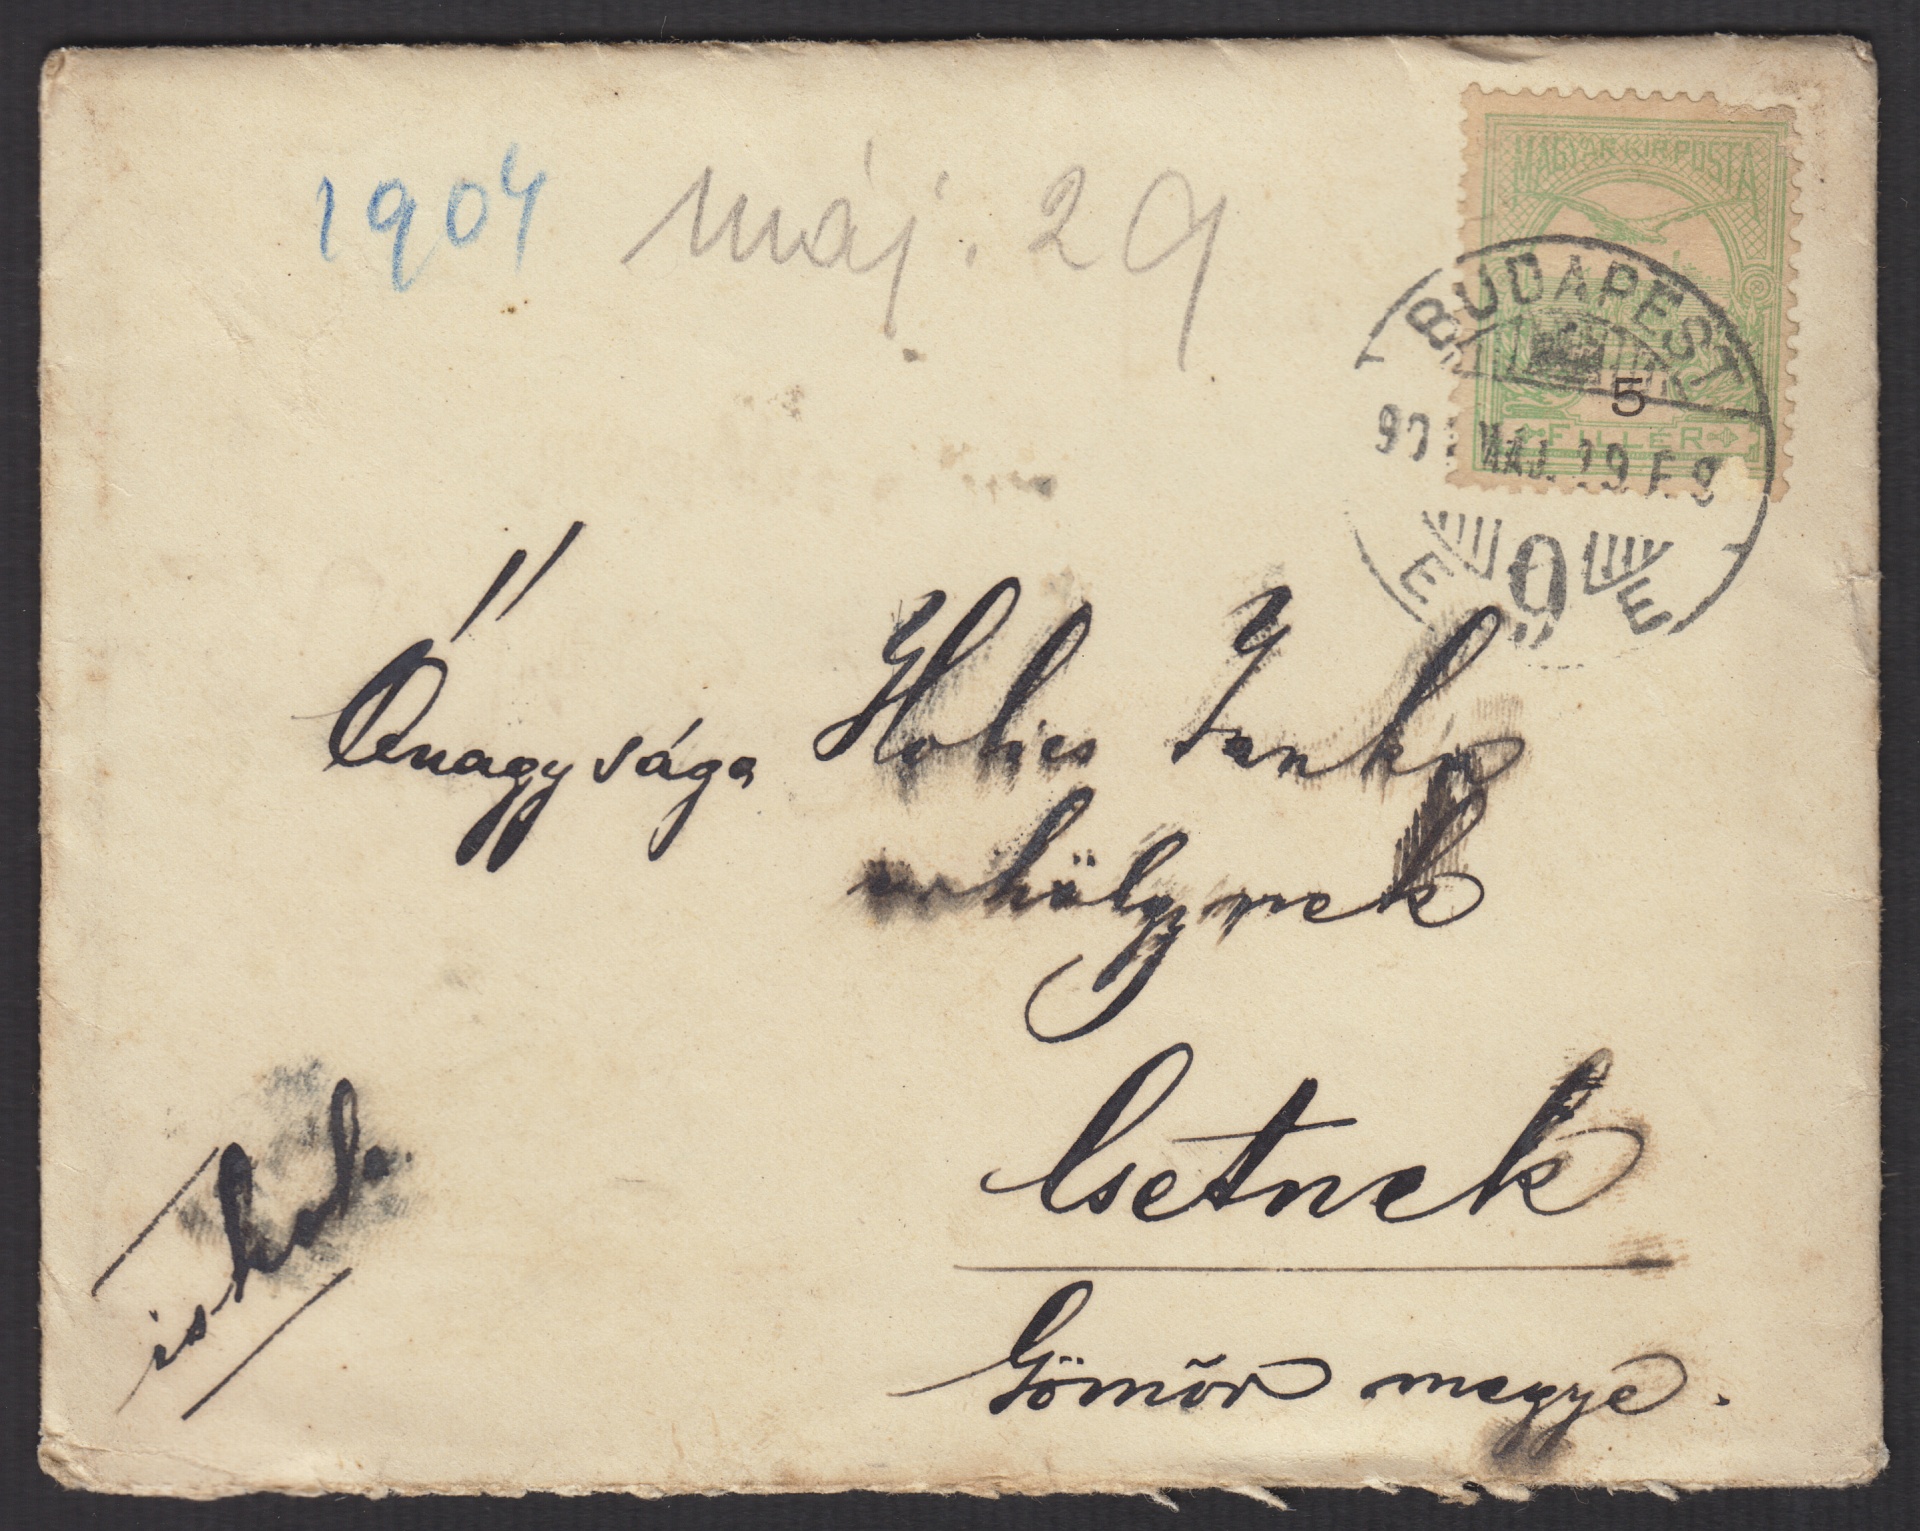 1904 máj. 29
MAGYAR KIR. POSTA
5
FILLÉR
BUDAPEST
MÁJ. 29
Őnagysága Holics Janka
úrhölgynek
Csetnek
Gömör megye.